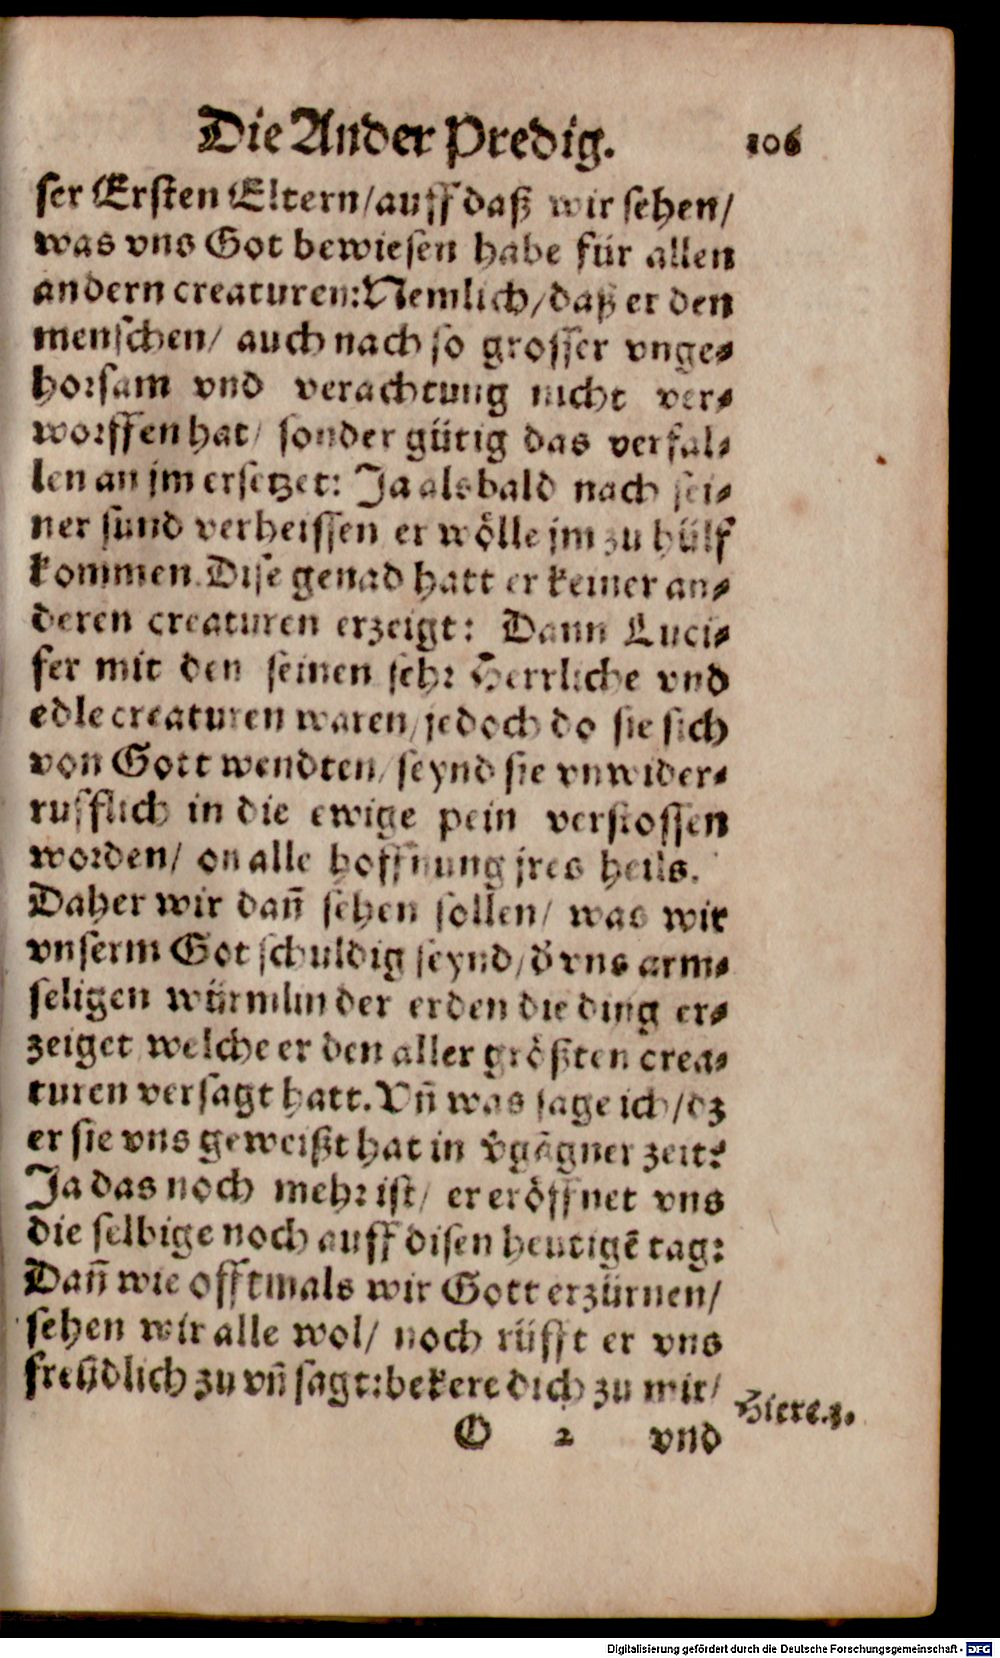 Die Ander Predig. 106
ser Ersten Eltern/auff daß wir sehen/
was vns Got bewiesen habe für allen
andern creaturen:Nemlich/daß er den
menschen/ auch nach so grosser vnge-
horsam vnd verachtung nicht ver-
worffen hat/ sonder gütig das verfal-
len an jm ersetzet: Ja als bald nach sei-
ner sund verheissen er wölle jm zu hülf
kommen. Dise genad hatt er keiner an-
deren creaturen erzeigt: Dann Luci-
fer mit den seinen sehr Herrliche vnd
edle creaturen waren/jedoch do sie sich
von Gott wendten/seynd sie vnwider-
rufflich in die ewige pein verstossen
worden/ on alle hoffnung jres heils.
Daher wir dañ sehen sollen/ was wir
vnserm Got schuldig seynd/d̕ vns arm-
seligen würmlin der erden die ding er-
zeiget welche er den aller größten crea-
turen versagt hatt. Vñ was sage ich/dz
er sie vns geweißt hat in v̕gãgner zeit?
Ja das noch mehr ist/ er eröffnet vns
die selbige noch auff disen heutigẽ tag:
Dañ wie offtmals wir Gott erzürnen/
sehen wir alle wol/ noch rüfft er vns
freũdlich zu vñ sagt:bekere dich zu mir/
Hiere.3.
O 2 vnd
Digitalisierung gefördert durch die Deutsche Forschungsgemeinschaft - DFG